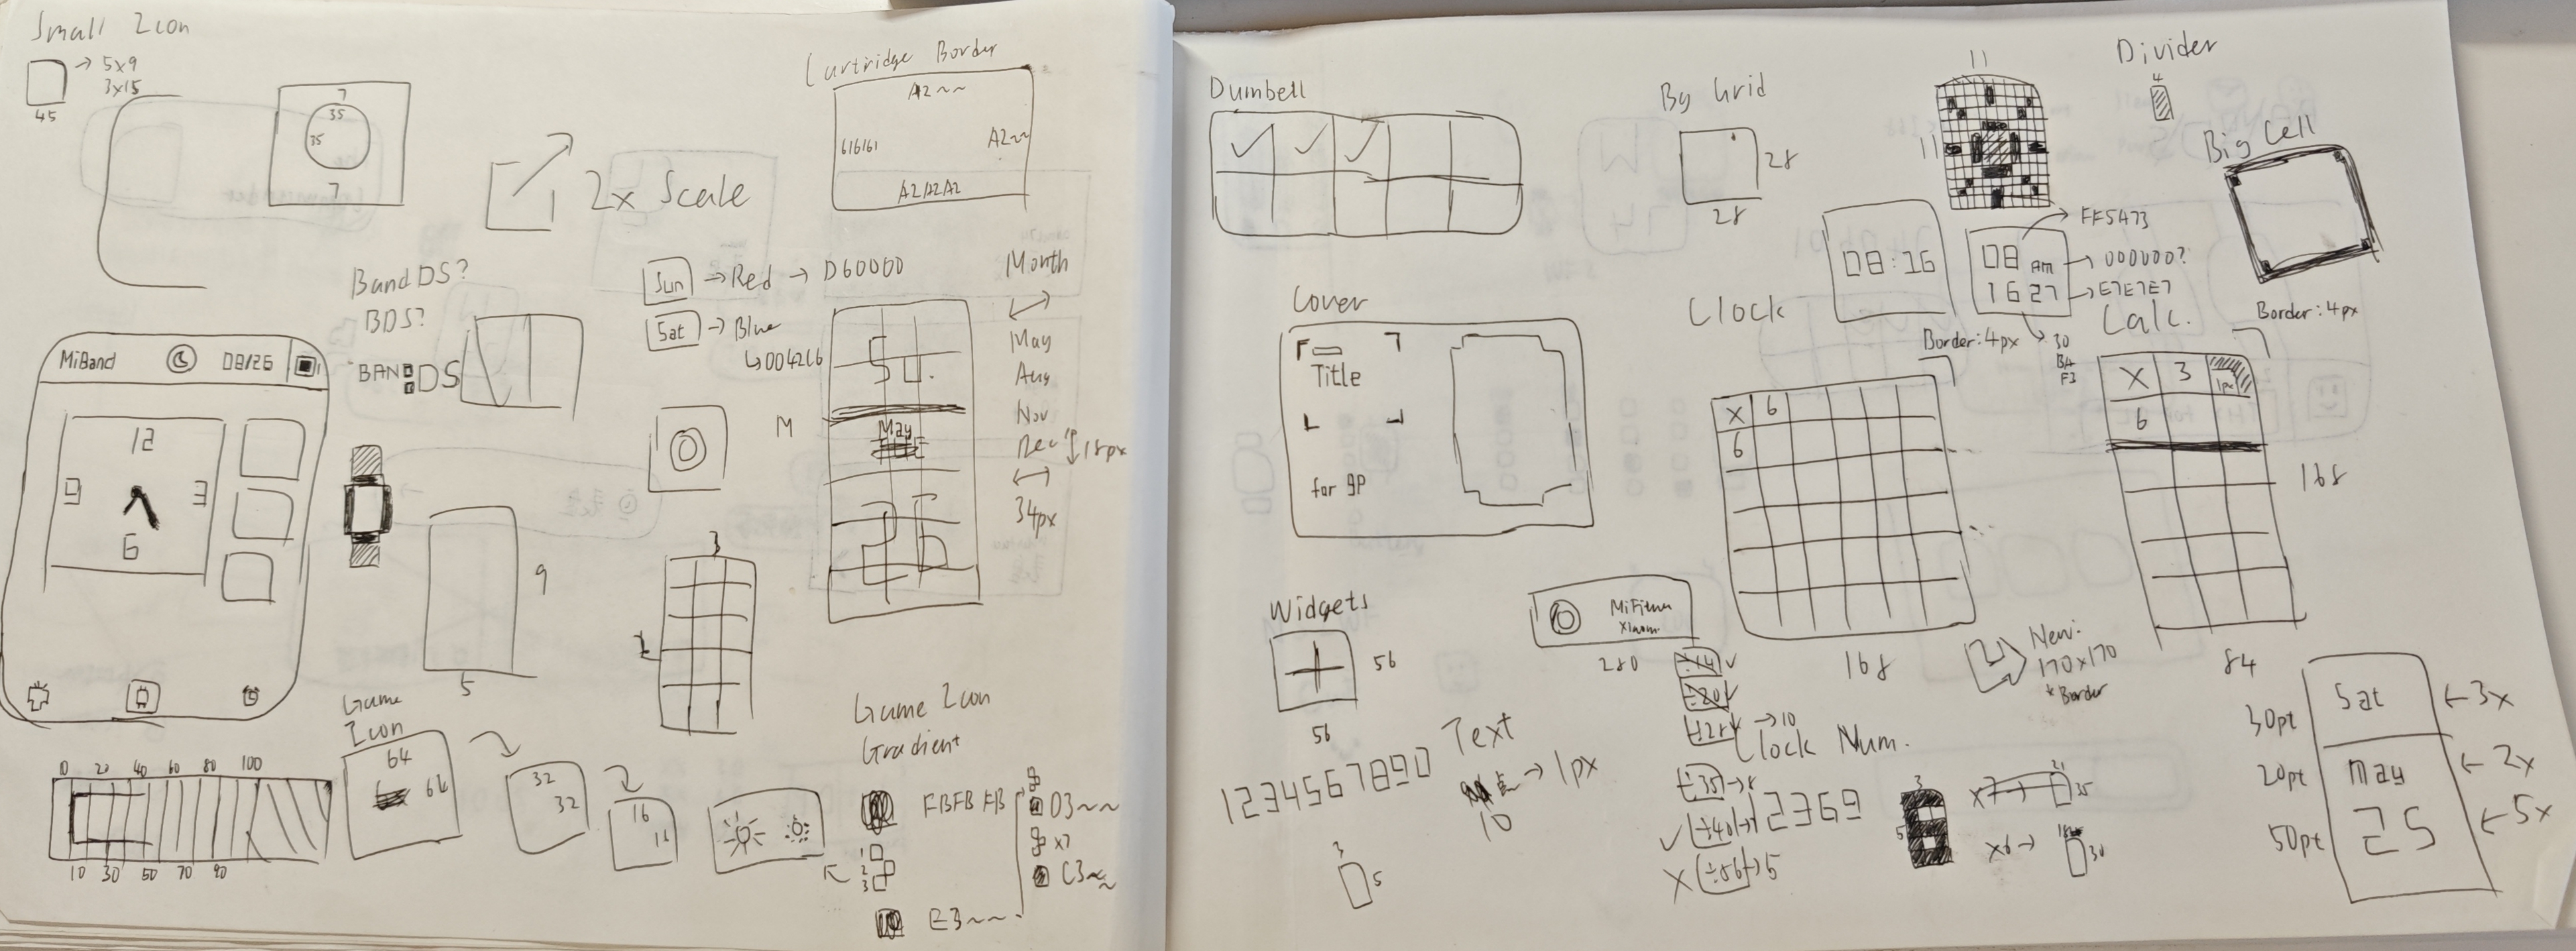 Small Icon
→ 5x9
3x15
45
7
35
35
7
2x Scale
Cartridge Border
A2~~
616161
A2~~
A2A2A2
BandDS?
BDS?
BANDS
Sun → Red → D60000
Sat → Blue
↳ 0042C6
Month
May
Aug
Nov
Dec
18px
34px
M
SU.
May
25
MiBand
08/26
12
9
3
6
9
5
3
Game
Icon
64
64
32
32
16
16
0 20 40 60 80 100
10 30 50 70 90
Game Icon
Gradient
FBFBFB
1
2
3
E3~~
D3~~
x7
C3~~
Dumbell
Bg Grid
28
28
11
11
Divider
4
Big Cell
Border: 4px
08:16
08 AM
16 27
FF5A73
000000?
E7E7E7
30
BA
F3
Cover
Title
for 9P
Clock
Border: 4px
X 6
6
168
New:
170x170
*Border
Calc.
X 3
1px
6
168
84
Widgets
56
56
MiFitness
Xiaomi
280
÷14 ✓
÷20 ✓
÷28 → 10
1234567890
Text
→ 1px
10
3
5
Clock Num.
÷35 → 8
✓ ÷40 → 7
X ÷56 → 5
12369
3
5
x7 → 21
35
x6 → 18
30
30pt
Sat
← 3x
20pt
May
← 2x
50pt
25
← 5x